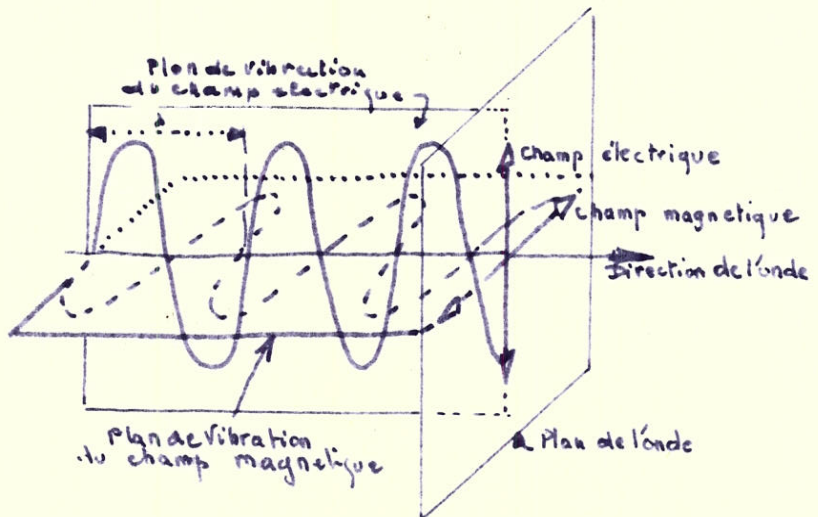 Plan de vibration
du champ electrique
λ
champ électrique
champ magnetique
Direction de l'onde
Plan de vibration
du champ magnetique
Plan de l'onde